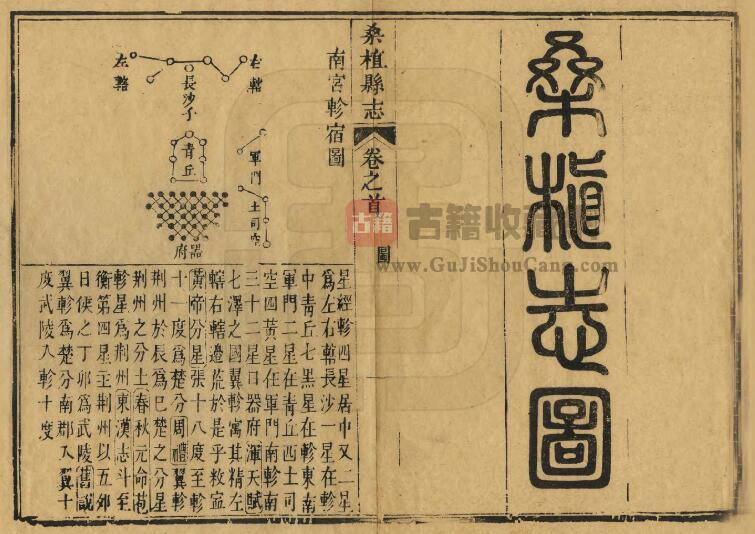 桑植志圖
桑植縣志
卷之首
圖
南宮軫宿圖
右轄
左轄
長沙子
青丘
軍門
土司空
器府
星經軫四星居中又二星
爲左右轄長沙一星在軫
中青丘七黑星在軫東南
軍門二星在青丘西土司
空四黃星在軍門南軫南
三十二星曰器府渾天賦
七澤之國翼軫寓其精左
轄右轄邊荒於是乎敉寍
黃帝分星張十八度至軫
十一度爲楚分周禮翼軫
荆州於辰爲巳楚之分星
荆州之分土春秋元命苞
軫星爲荆州東漢志斗至
衡第四星主荆州以五夘
日候之丁卯爲武陵舊誌
翼軫爲楚分南郡入翼十
度武陵入軫十度
古籍
古籍收藏
www.GuJiShouCang.com